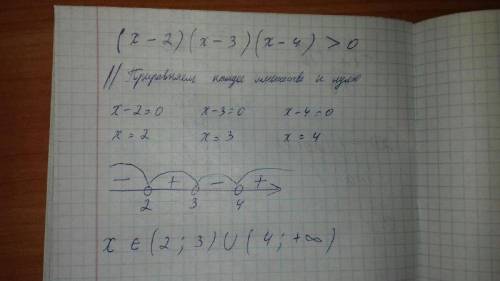 (x-2)(x-3)(x-4)>0
// Приравняем каждый множитель к нулю
x-2=0 x-3=0 x-4=0
x=2 x=3 x=4
- + - +
2 3 4
x ∈ (2; 3) ∪ (4; +∞)